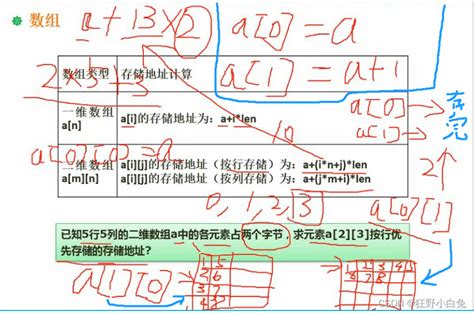 数组
a + 13 × 2
a[0] = a
a[1] = a+1
数组类型 存储地址计算
2×5+3
一维数组
a[n]
a[i]的存储地址为：a+i*len
a[0]→存
a[1]→完
10
a[0][0]=a
二维数组
a[m][n]
a[i][j]的存储地址（按行存储）为：a+(i*n+j)*len
a[i][j]的存储地址（按列存储）为：a+(j*m+i)*len
2
0, 1, 2, 3
a[0][1]
已知5行5列的二维数组a中的各元素占两个字节，求元素a[2][3]按行优
先存储的存储地址？
a[1][0]
1 5
2 6
3 7
4
1 2 3 4 5
6 7 8
CSDN @狂野小白兔